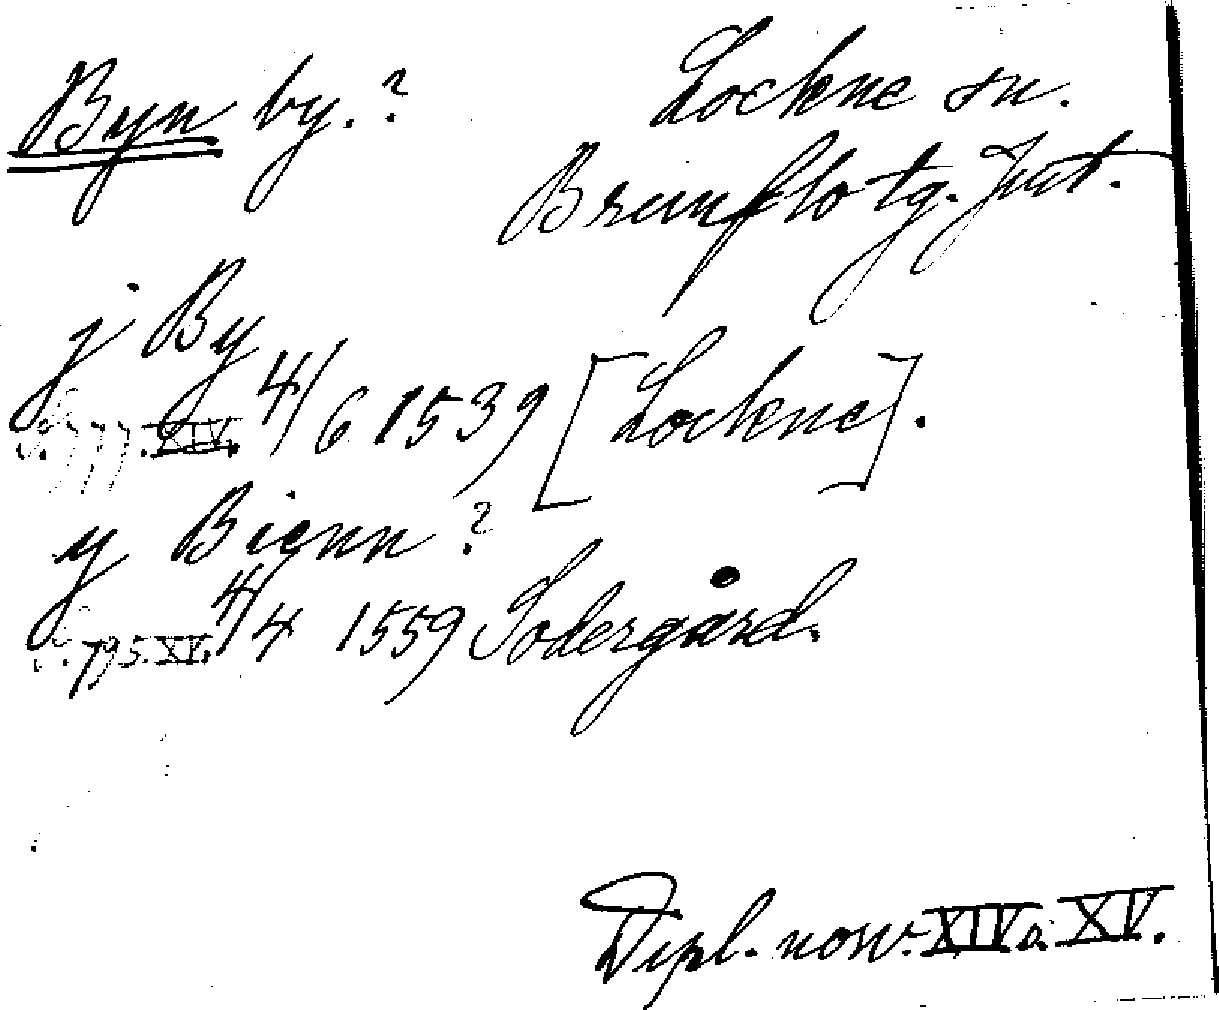 Byn by.? Lockne sn.
Brunflo tg. Jmt.
j By
s. 777. XIV. 4/6 1539 [Lockne].
y Bignn?
s. 795. XV. 4/4 1559 Södergård.
Dipl. norv. XIV o. XV.